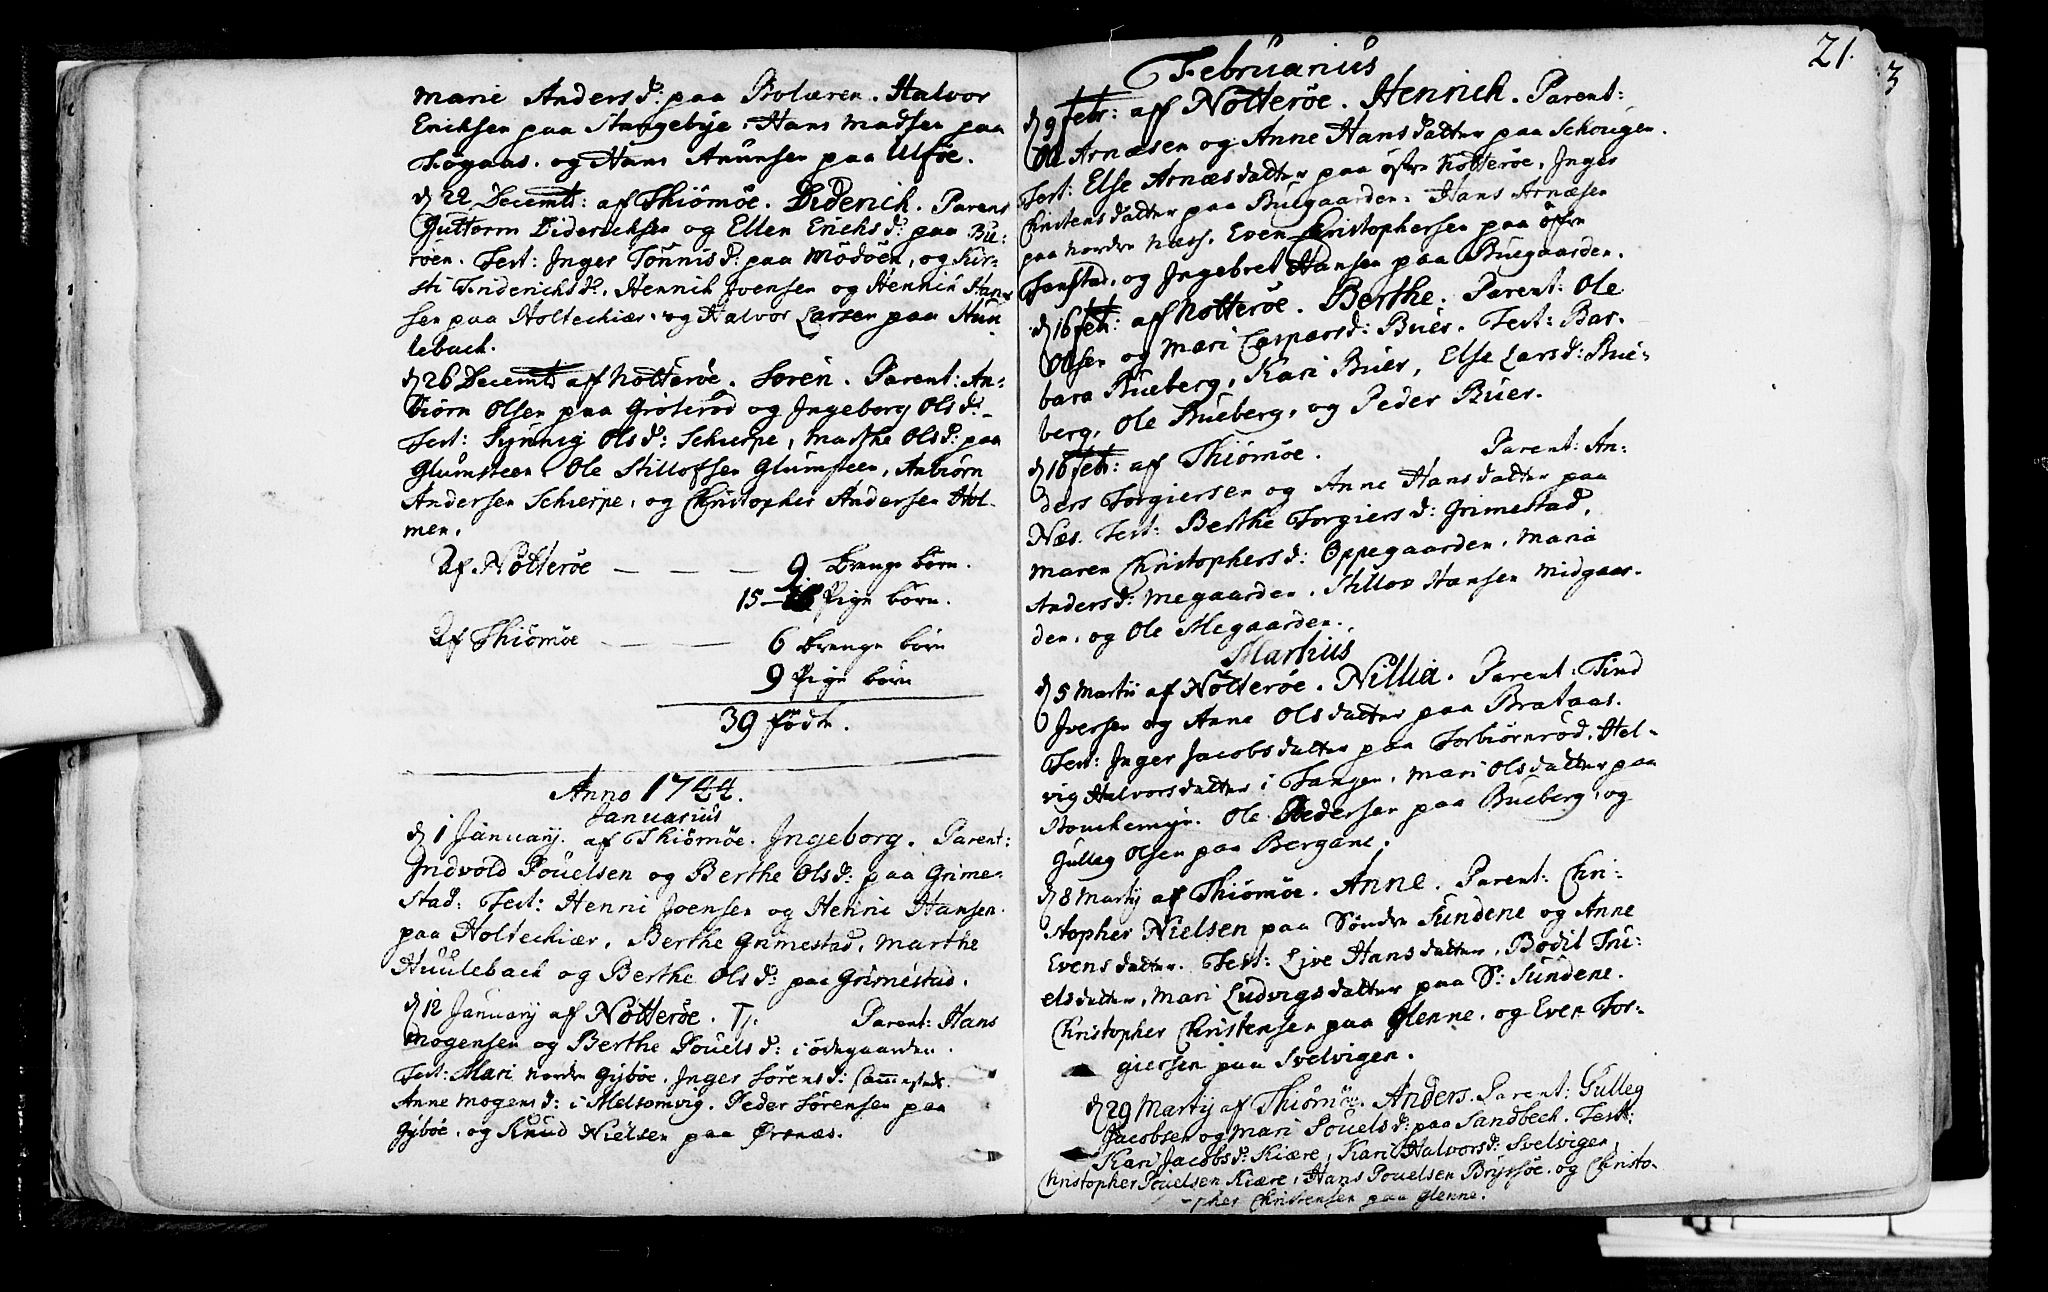 Marie Anders d: paa Bolæren. Halvor
Erichsen paa Stangebye, Hans Madsen paa
Togaas. og Hans Anunsen paa Ulföe.
d 22 Decembr: af Thiömöe. Diderich. Parent
Guttorm Diderichsen og Ellen Erichs d: paa Bu:
röen. Test: Inger Tönnis d: paa Mödöen, og Kir-
sti Friderichs d:, Henrich Ivensen og Henrich Han-
sen paa Holtechiær. og Halvor Larsen paa Hun
lebach.
d 26 Decemb af Notteröe. Sören. Parent: An-
biörn Olsen paa Gröteröd og Ingeborg Ols d:
Test: Synnig Ols d: Schierpe, Marthe Ols d: paa
Glumsteen. Ole Stillofsen Glumsteen, Anbiörn
Andersen Schierpe, og Christopher Andersen Hol-
men.
Af Nötteröe — — — 9 Drenge börn.
15 — Pige börn.
Af Thiömöe — — — 6 Drenge börn
9 Pige börn
39 födte.
Anno 1744.
Januarius
d 1 January. af Thiömöe. Ingeborg. Parent:
Indvold Pouelsen og Berthe Ols d: paa Grime-
stad: Test: Henri Ivensen og Henri Hansen
paa Holtechiær, Berthe Grimestad, Marthe
Huulebach og Berthe Ols d: paa Grimestad.
d 12 January af Nötteröe. T. Parent: Hans
Mogensen og Berthe Pouels d: i ödegaarden.
Test: Mari Nordre Gyböe. Inger Sörens d:
Anne Mogens d: i Melsomvig. Peder Sörensen paa
Gyböe. og Knud Nielsen paa Örsnæs.
21.
3
Februarius
d 9 Febr: af Nötteröe. Henrich. Parent:
Ole Arnæsen og Anne Hansdatter paa Schougen.
Test: Else Arnæsdatter paa östre Nötteröe, Inger
Christensdatter paa Buegaarden. Hans Arnæsen
paa Nordre Næss. Even Christophersen paa öfre
og Ingebret Hansen paa Buegaarden.
d 16 Febr: af Notteröe. Berthe. Parent: Ole
Olsen og Mari Caspars d: Buer. Test: Bar-
bara Bueberg, Kari Buer, Else Lars d: Bue-
berg, Ole Bueberg, og Peder Buer.
d 16 Febr: af Thiömöe. Parent: An-
ders Torgiersen og Anne Hansdatter paa
Næs. Test: Berthe Torgiers d: Grimestad,
Maren Christophers d: Oppegaarden. Maria
Anders d: Megaarden. Stillov Hansen Midgaar-
den. og Ole Megaarden.
Martius
d 5 Martii af Nötteröe. Nillia. Parent: Find
Iversen og Anne Olsdatter paa Brataas.
Test: Inger Jacobsdatter paa Torbiörnröd, Hel-
vig Halvorsdatter i Tangen, Mari Olsdatter paa
Bouchemyr. Ole Pedersen paa Bueberg, og
Gulleg Olsen paa Bergane.
d 8 Marty af Thiömöe. Anne. Parent: Chri-
stopher Nielsen paa Söndre Sundene og Anne
Evensdatter. Test: Live Hansdatter, Bodil Tru-
elsdatter, Mari Ludvigsdatter paa S: Sundene.
Christopher Christensen paa Glenne. og Even Tor-
giersen paa Svelvigen.
d 29 Martij af Thiömöe. Anders. Parent: Gulleg
Jacobsen og Mari Pouels d: paa Sandbech. Test:
Kari Jacobs d: Kiære, Kari Halvors d: Svelvigen,
Christopher Pouelsen Kiære, Hans Pouelsen Brysöe. og Christo-
-pher Christensen paa Glenne.